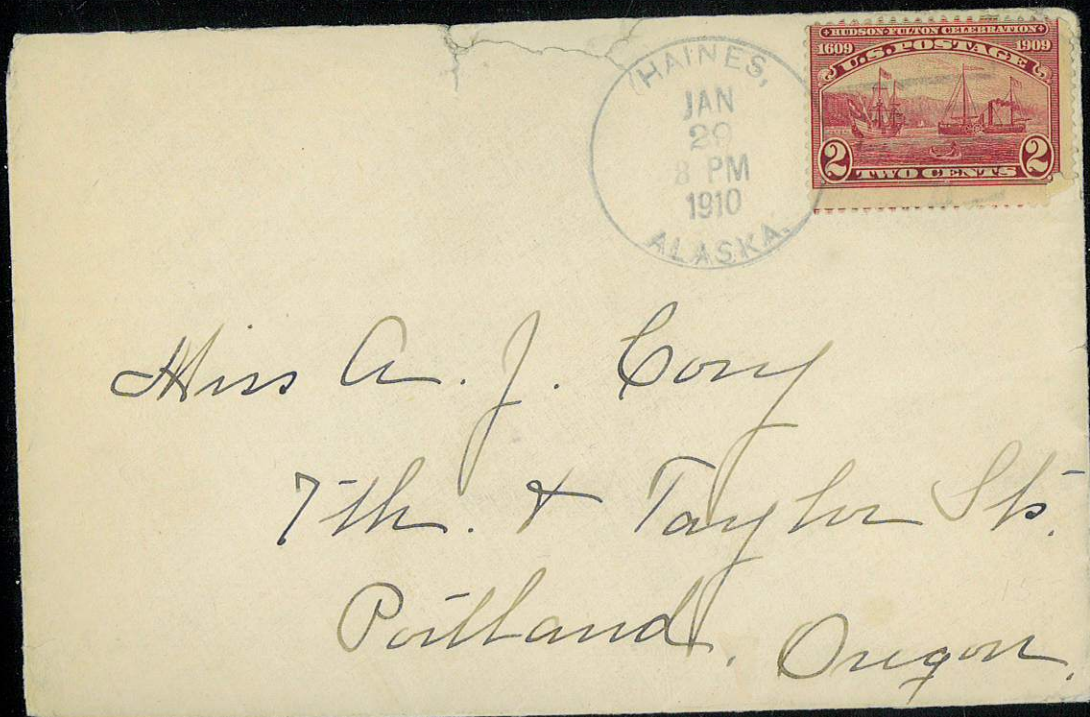 HAINES,
JAN
29
8 PM
1910
ALASKA.
HUDSON-FULTON CELEBRATION
1609 1909
U.S. POSTAGE
2 2
TWO CENTS
Miss A. J. Cory
7th. & Taylor Sts.
Portland, Oregon.